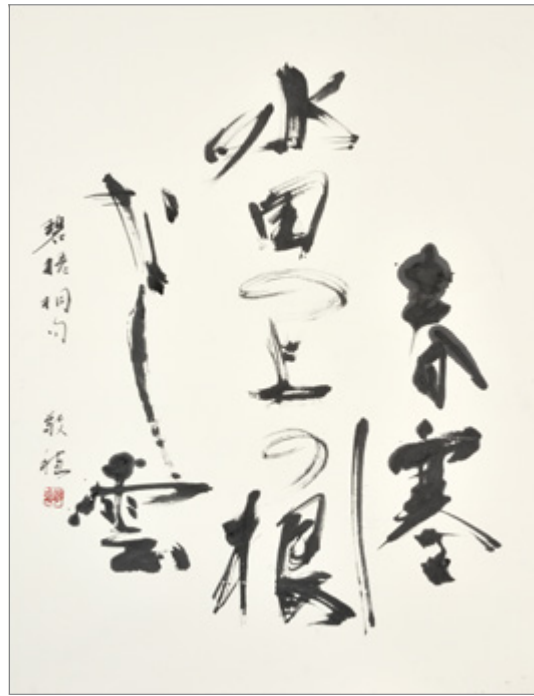 春寒し
水田の上の根
なし雲
碧梧桐句